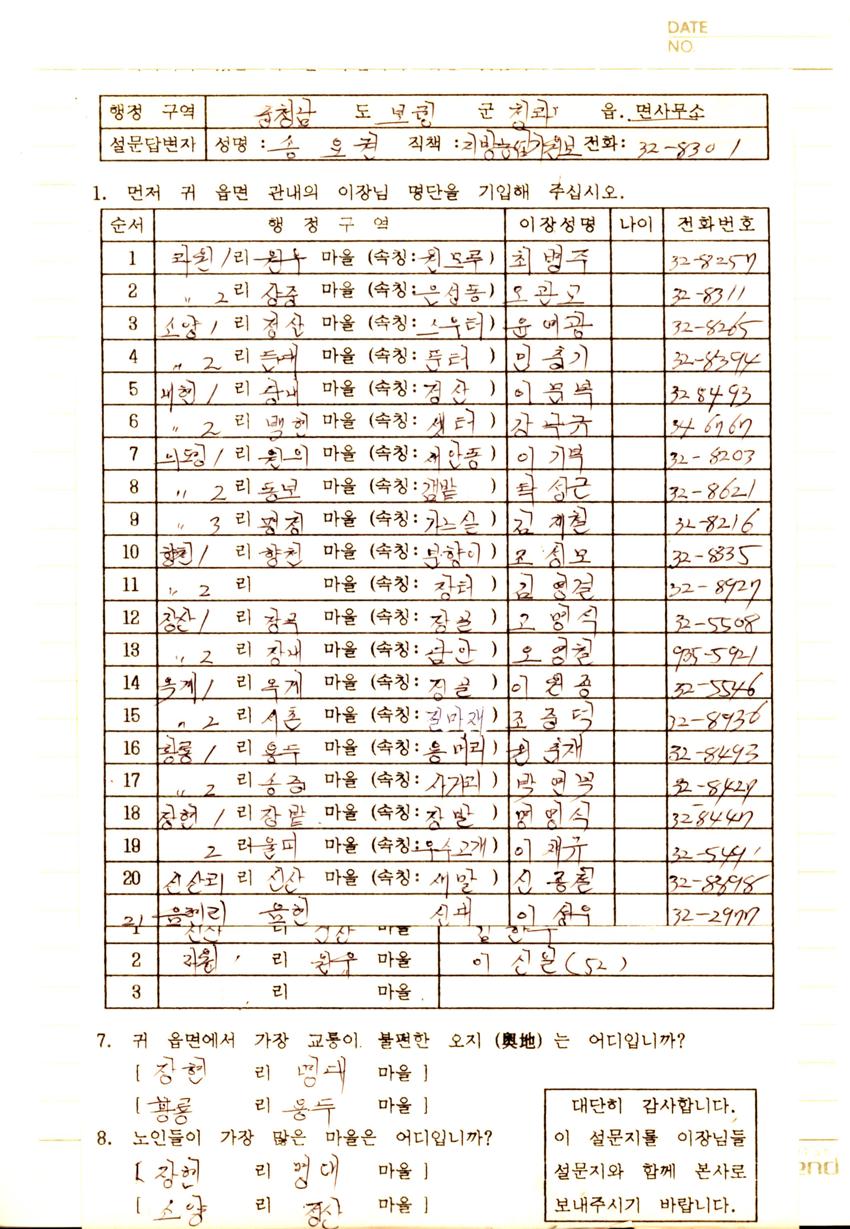 DATE
NO.
행정 구역 충청남 도 보령 군 청라 읍. 면사무소
설문답변자 성명 : 송 오 직책 : 전화: 32-8301
1. 먼저 귀 읍면 관내의 이장님 명단을 기입해 주십시오.
순서 행 정 구 역 이장성명 나이 전화번호
1 라원 1 리 원두 마을 (속칭: ) 최 병주 32-8257
2 〃 2 리 상중 마을 (속칭: 은선동) 오 관고 32-8311
3 소양 1 리 정산 마을 (속칭: 스무티) 윤 32-8265
4 〃 2 리 마을 (속칭: 둔터 ) 민 홍기 32-8394
5 내현 1 리 마을 (속칭: 점산 ) 이 328493
6 〃 2 리 백현 마을 (속칭: 샛터 ) 강 34 6767
7 1 리 원의 마을 (속칭: ) 이 기부 32-8203
8 〃 2 리 동보 마을 (속칭: 갬밭 ) 성근 32-8621
9 〃 3 리 평정 마을 (속칭: 가느실 ) 김 32-8216
10 향천 1 리 향천 마을 (속칭: 분향이 ) 조 성모 32-8335
11 〃 2 리 마을 (속칭: 장터 ) 김 영걸 32-8927
12 장산 1 리 마을 (속칭: 장골 ) 고 명식 32-5508
13 〃 2 리 장내 마을 (속칭: ) 오 영철 935-5921
14 옥계 1 리 옥계 마을 (속칭: 정골 ) 이 원종 32-5546
15 〃 2 리 서촌 마을 (속칭: 질마재 ) 조 중덕 32-8936
16 황룡 1 리 용두 마을 (속칭: 용머리 ) 원 32-8493
17 〃 2 리 송중 마을 (속칭: 사거리 ) 박 연복 32-8427
18 장현 1 리 장밭 마을 (속칭: 장밭 ) 명 명식 328447
19 2 리 울띠 마을 (속칭: 우수고개 ) 이 재규 32-5491
20 신산리 리 신산 마을 (속칭: 새말 ) 신 32-8398
21 음현리 음현 신대 이 섭우 32-2977
1 신산 리 마을 김
2 라원 리 원두 마을 이 신원 (52)
3 리 마을
7. 귀 읍면에서 가장 교통이 불편한 오지 (奧地) 는 어디입니까?
[ 장현 리 명대 마을 ]
[ 황룡 리 용두 마을 ]
8. 노인들이 가장 많은 마을은 어디입니까?
[ 장현 리 명대 마을 ]
[ 소양 리 정산 마을 ]
대단히 감사합니다.
이 설문지를 이장님들
설문지와 함께 본사로
보내주시기 바랍니다.